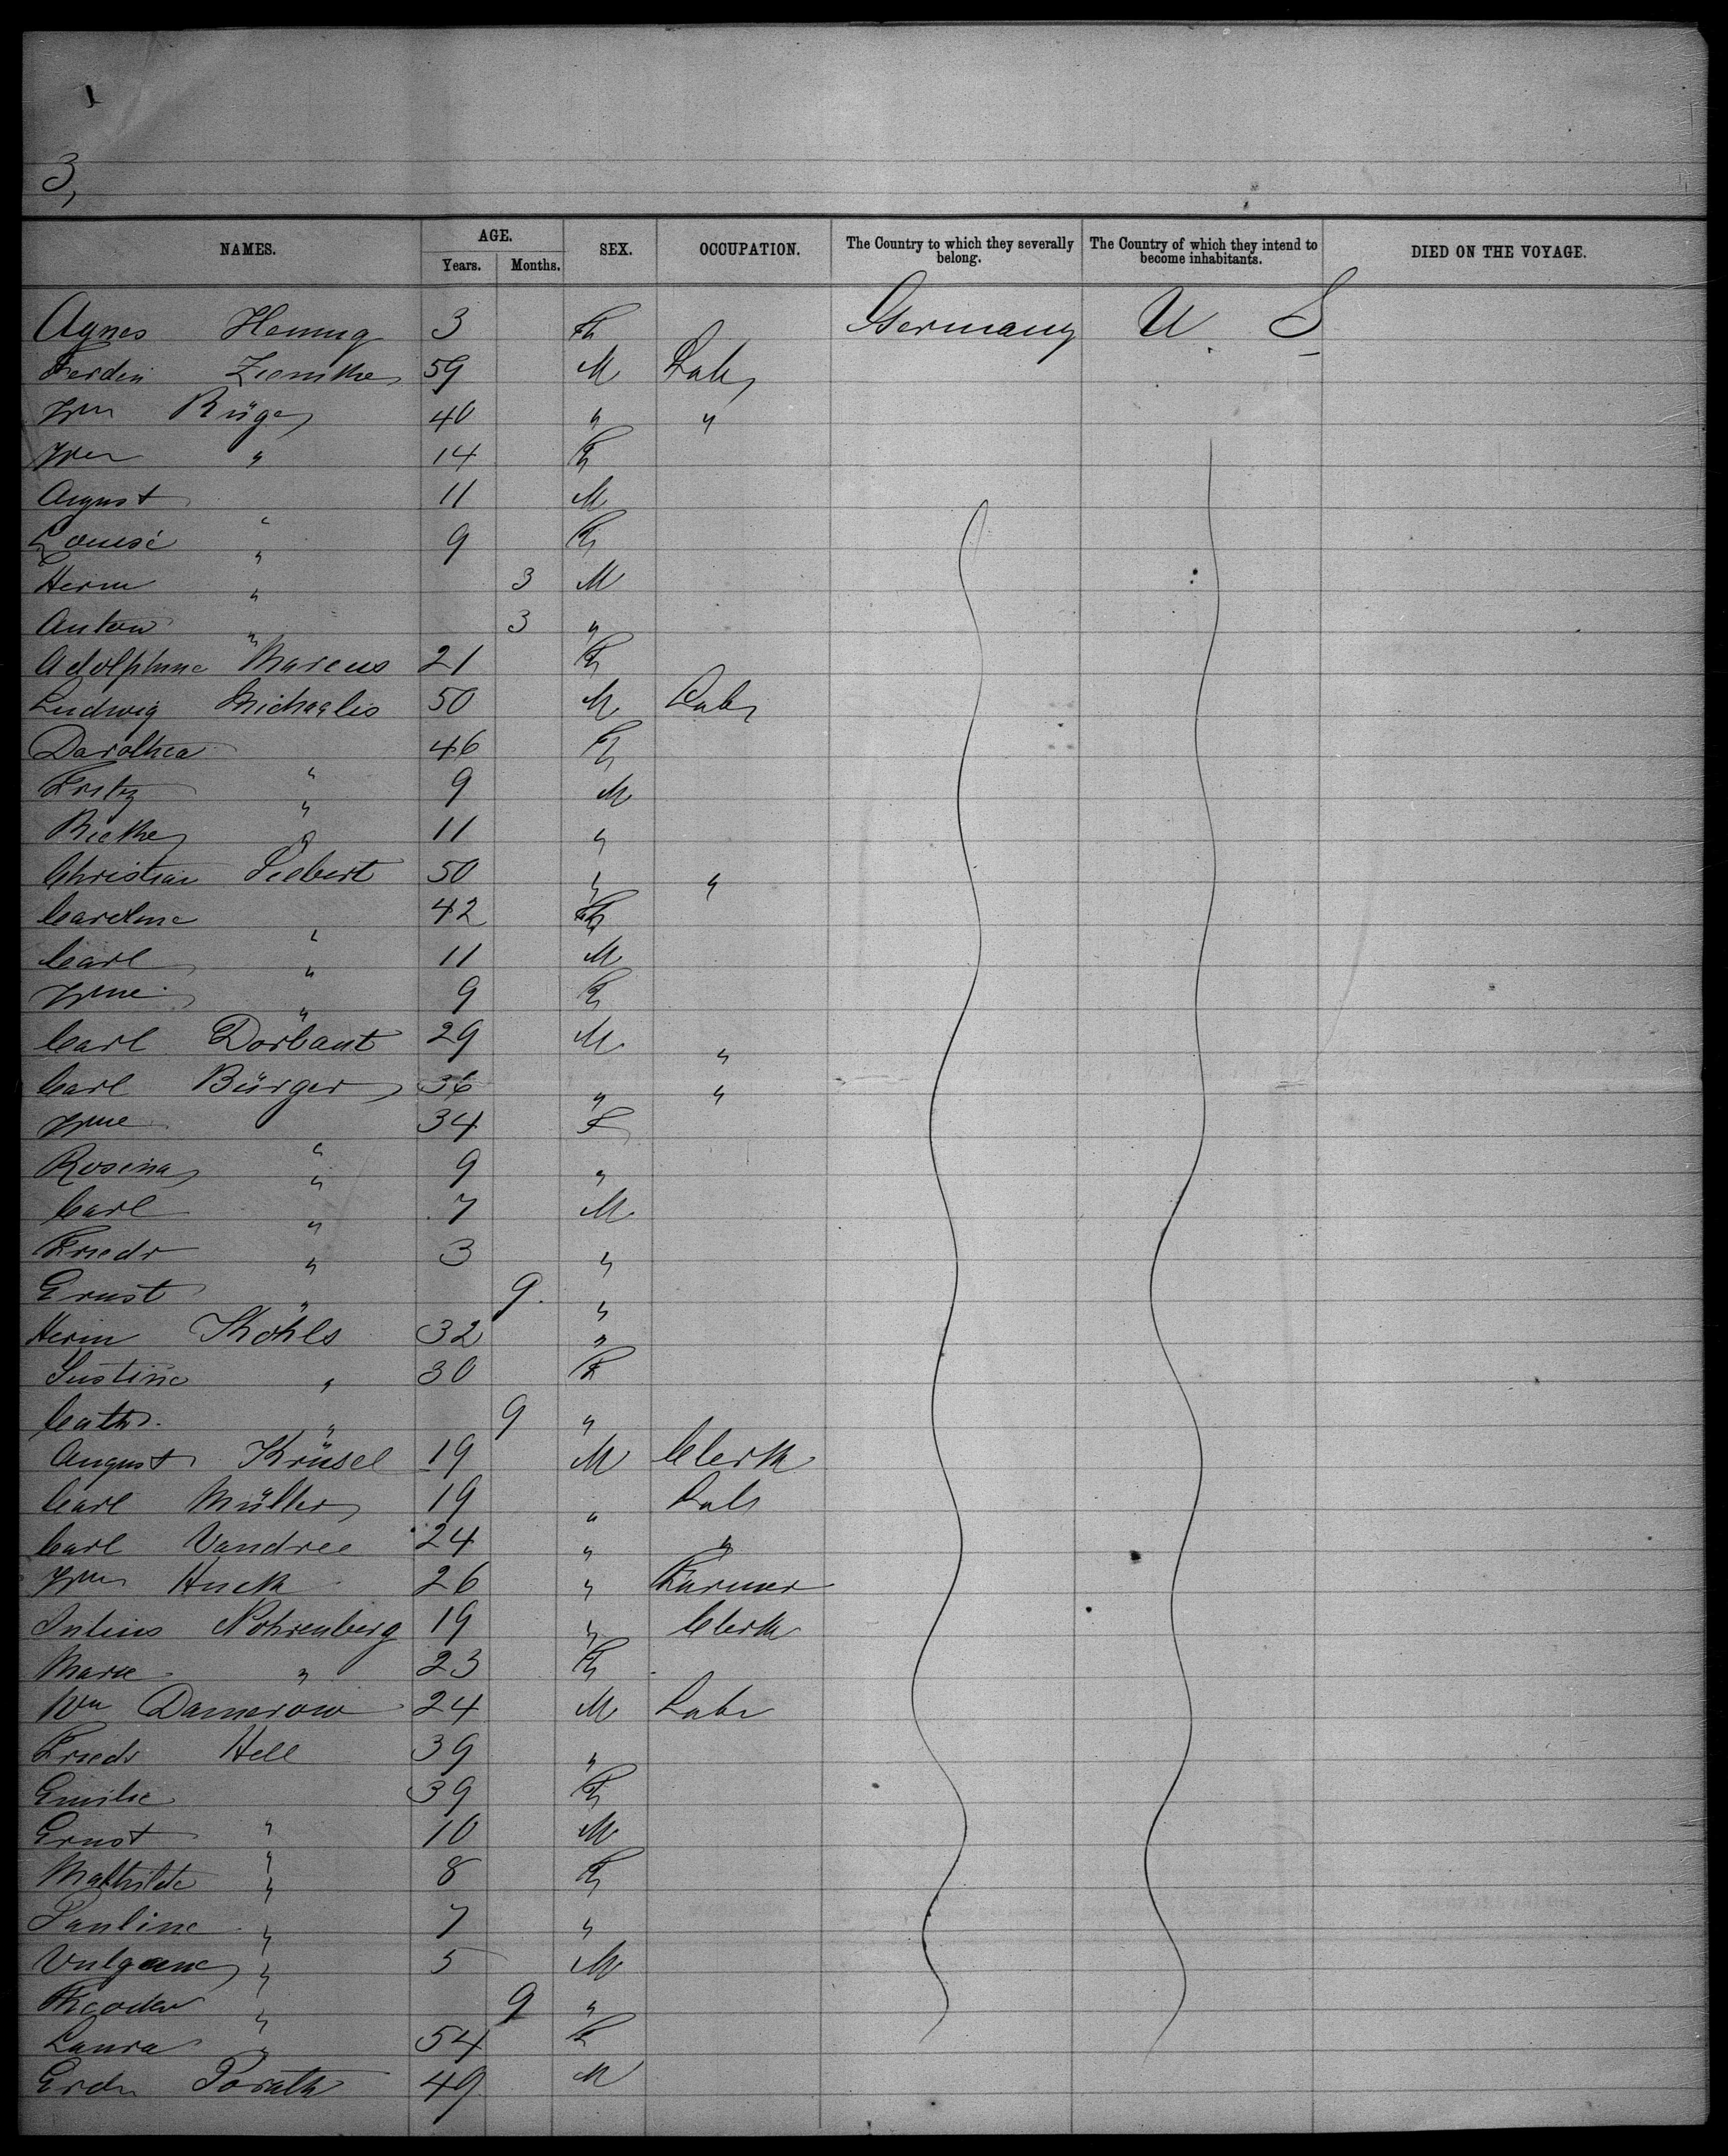 3,
NAMES. AGE. SEX. OCCUPATION. The Country to which they severally belong. The Country of which they intend to become inhabitants. DIED ON THE VOYAGE.
Years. Months.
Agnes Hennig 3 F Germany U S
Ferdin Ziemke 59 M Labr
Wm Rüge 40 " "
Wm " 14 F
August " 11 M
Louise " 9 F
Herm " 3 M
Anton " 3 "
Adolphine Marcus 21 F
Ludwig Michaelis 50 M Labr
Dorothea " 46 F
Fritz " 9 M
Rieke " 11 "
Christian Siebert 50 " "
Caroline " 42 F
Carl " 11 M
Wme " 9 F
Carl Dorbant 29 M "
Carl Bürger 36 " "
Wme " 34 F
Rosina " 9 "
Carl " 7 M
Friedr " 3 "
Ernst " 9 "
Herm Köhls 32 "
Justine " 30 F
Cathr. " 9 "
August Krüsel 19 M Clerk
Carl Müller 19 " Labr
Carl Vandree 24 " "
Wm Huck 26 " Farmer
Julius Nohrenberg 19 " Clerk
Marie " 23 F
Wm Damerow 24 M Labr
Friedr Hell 39 "
Emilie " 39 F
Ernst " 10 M
Mathilde " 8 F
Pauline " 7 "
" 5 M
Theodor " 9 "
Laura " 54 F
Porath 49 M